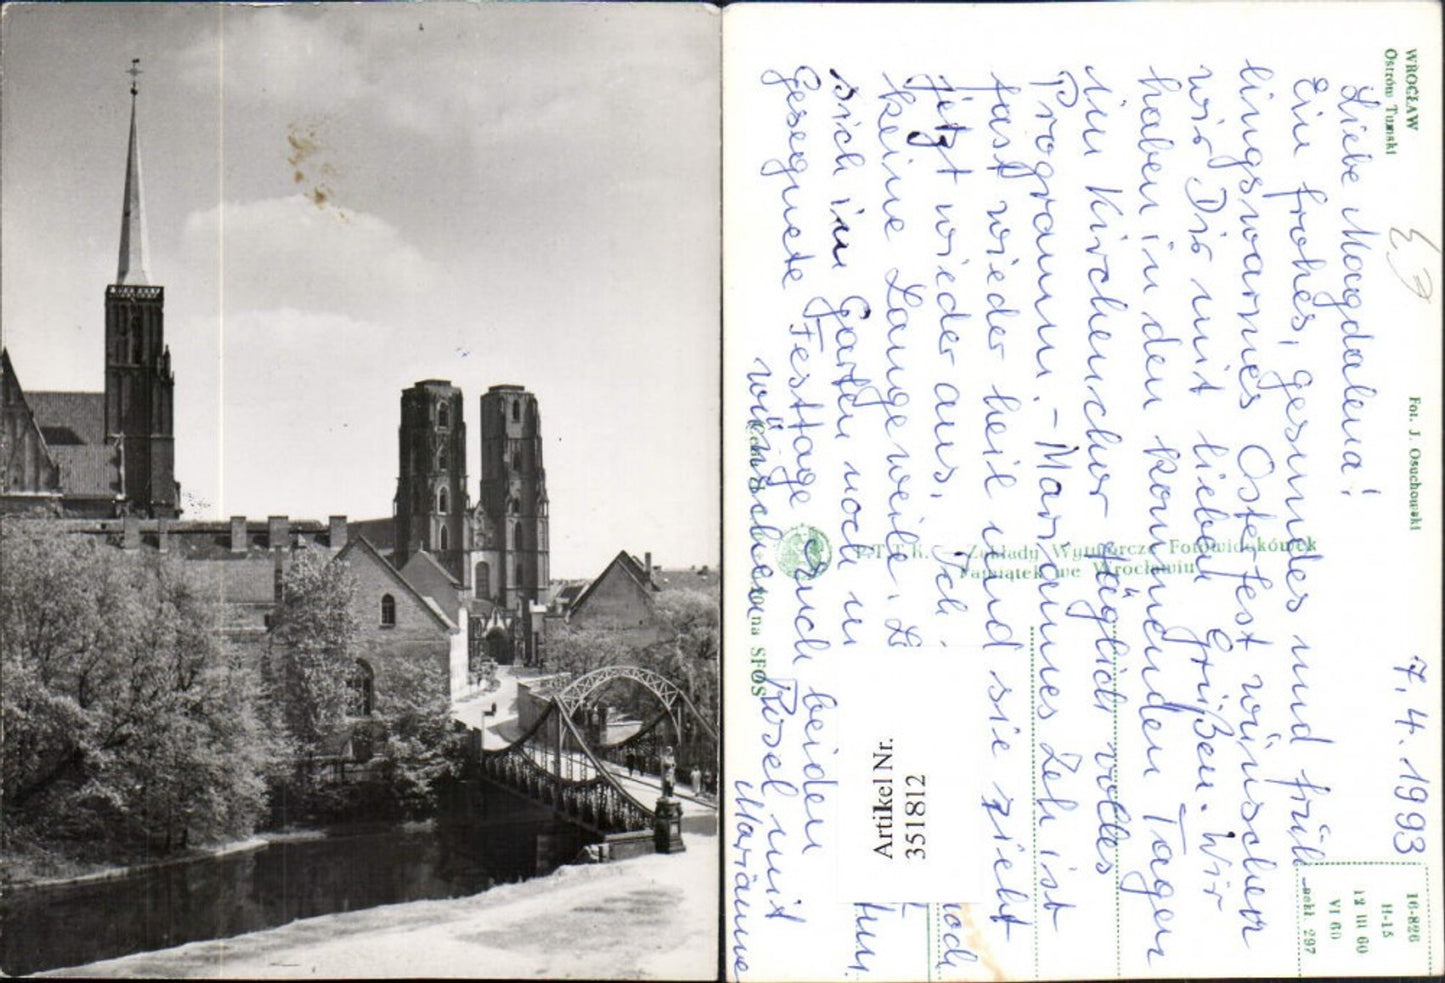 WROCŁAW
Ostrów Tumski
Fot. J. Osuchowski
7.4.1993
Liebe Magdalena!
Ein frohes, gesundes und früh-
lingswarmes Osterfest wünschen
wir Dir mit lieben Grüßen. Wir
haben in den kommenden Tagen
im Kirchenchor täglich volles
Programm. - Mariannes Zeh ist
fast wieder heil und sie zieht
jetzt wieder aus. Ich
keine Langeweile.
sich im Garten noch
Gesegnete Festtage Euch beiden
wünschen Rosel mit
Marianne
P.T.T.K. — Zakłady Wytwórcze Fotowidokówek
Pamiątek we Wrocławiu
SFOS
Artikel Nr.
351812
16-826
H-15
12 III 60
VI 60
nakł. 297